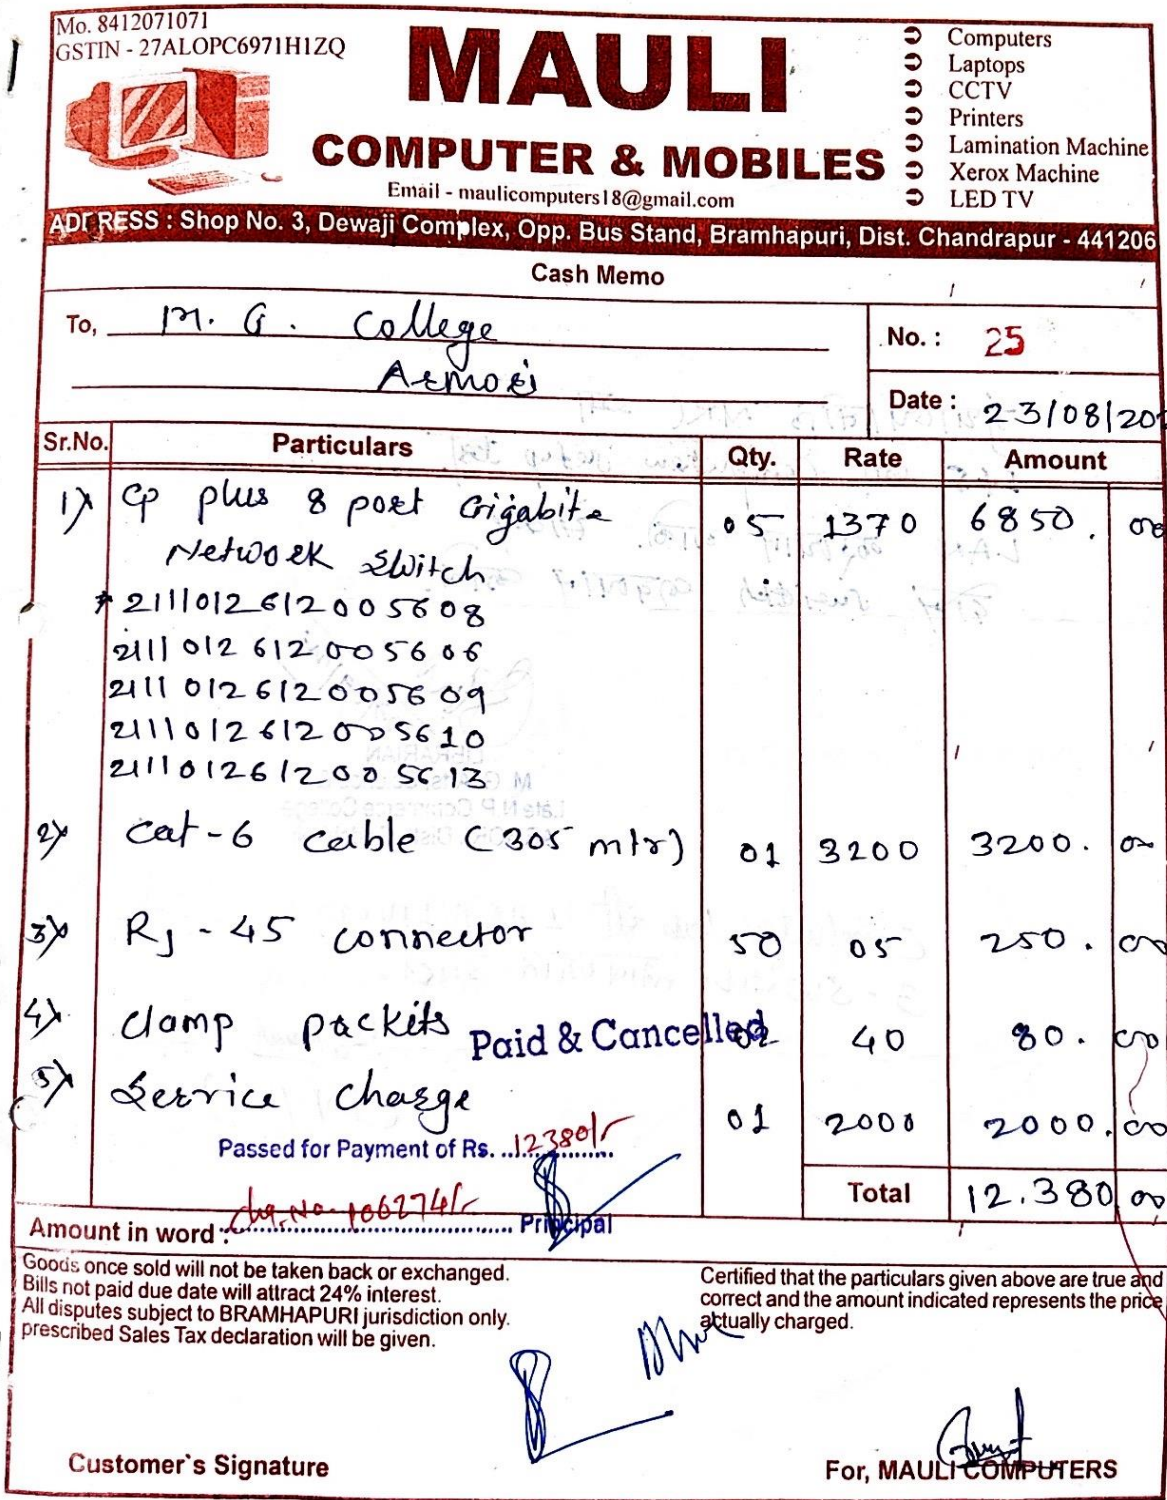 Mo. 8412071071
GSTIN - 27ALOPC6971H1ZQ
MAULI
COMPUTER & MOBILES
Email - maulicomputers18@gmail.com
Computers
Laptops
CCTV
Printers
Lamination Machine
Xerox Machine
LED TV
ADDRESS : Shop No. 3, Dewaji Complex, Opp. Bus Stand, Bramhapuri, Dist. Chandrapur - 441206
Cash Memo
To, M. G. College
Armori
No. : 25
Date : 23/08/202
Sr.No. Particulars Qty. Rate Amount
1) Cp plus 8 port Gigabite 05 1370 6850. 00
Network Switch
* 2111012612005608
2111012612005606
2111012612005609
2111012612005610
2111012612005613
2) Cat-6 Cable (305 mtr) 01 3200 3200. 00
3) Rj-45 connector 50 05 250. 00
4) Clamp packits 02 40 80. 00
Paid & Cancelled
5) Service Charge 01 2000 2000. 00
Passed for Payment of Rs. 12380/-
Total 12.380 00
Chq. No. 106274/-
Amount in word : Principal
Goods once sold will not be taken back or exchanged.
Bills not paid due date will attract 24% interest.
All disputes subject to BRAMHAPURI jurisdiction only.
prescribed Sales Tax declaration will be given.
Certified that the particulars given above are true and
correct and the amount indicated represents the price
actually charged.
Customer`s Signature
For, MAULI COMPUTERS